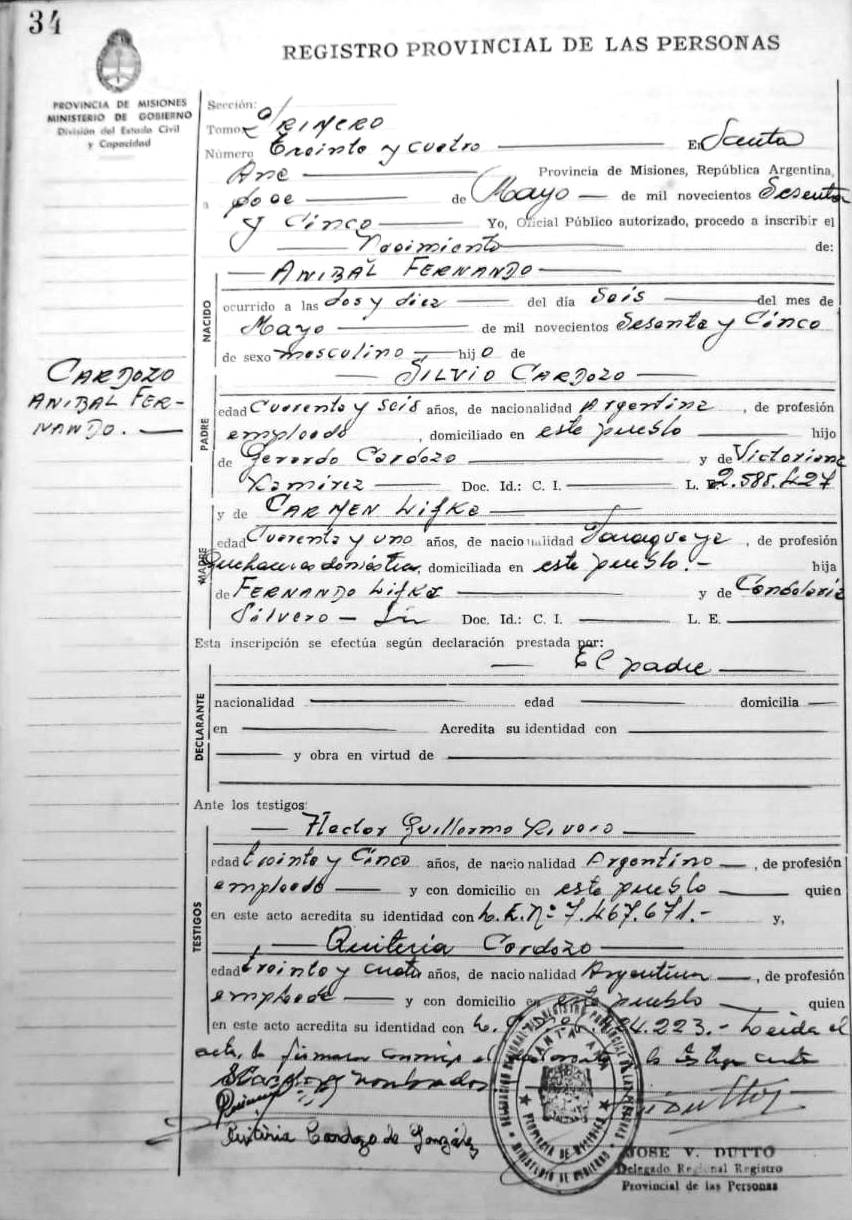 34
REGISTRO PROVINCIAL DE LAS PERSONAS
PROVINCIA DE MISIONES
MINISTERIO DE GOBIERNO
División del Estado Civil
y Capacidad
Sección:
Tomo PRIMERO
Número Treinta y cuatro En Santa
Ana Provincia de Misiones, República Argentina,
a doce de Mayo de mil novecientos Sesenta
y Cinco Yo, Oficial Público autorizado, procedo a inscribir el
Nacimiento de:
ANIBAL FERNANDO
NACIDO
ocurrido a las dos y diez del día Seis del mes de
Mayo de mil novecientos Sesenta y Cinco
de sexo masculino hijo de
CARDOZO
ANIBAL FER-
NANDO.
SILVIO CARDOZO
PADRE
edad Cuarenta y seis años, de nacionalidad Argentina, de profesión
empleado, domiciliado en este pueblo hijo
de Gerardo Cardozo y de Victoriana
Ramirez Doc. Id.: C. I. L. E. 2.585.427
y de CARMEN LIFKE
MADRE
edad Cuarenta y uno años, de nacionalidad Paraguaya, de profesión
Quehaceres domésticos, domiciliada en este pueblo.- hija
de FERNANDO LIFKE y de Candelaria
Silvero - Doc. Id.: C. I. L. E.
Esta inscripción se efectúa según declaración prestada por:
El padre
DECLARANTE
nacionalidad edad domicilia
en Acredita su identidad con
y obra en virtud de
Ante los testigos:
Hector Guillermo Rivero
TESTIGOS
edad treinta y Cinco años, de nacionalidad Argentino, de profesión
empleado y con domicilio en este pueblo quien
en este acto acredita su identidad con L.E.Nº 7.467.671.- y,
Quiteria Cardozo
edad treinta y cuatro años, de nacionalidad Argentina, de profesión
empleada y con domicilio en este pueblo quien
en este acto acredita su identidad con 4.223.- Leida el
acta, la firman conmigo el
nombrados
Quiteria Cardozo de González
SANTA ANA
PROVINCIA DE MISIONES
MINISTERIO DE GOBIERNO
JOSE V. DUTTO
Delegado Regional Registro
Provincial de las Personas